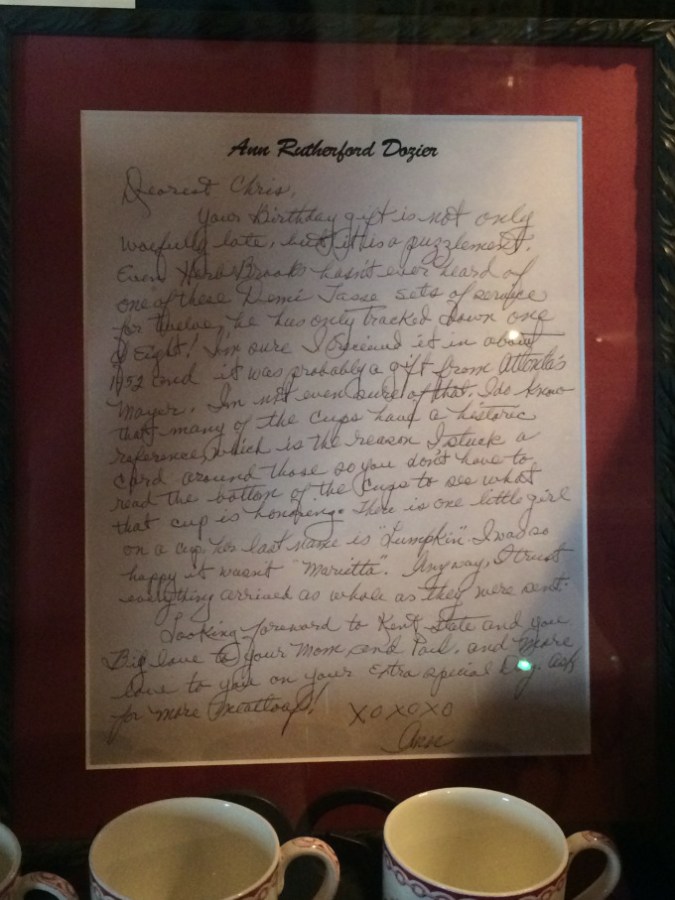 Ann Rutherford Dozier
Dearest Chris,
Your Birthday gift is not only
woefully late, but it is a puzzlement.
Even Herb Brooks hasn't ever heard of
one of these Demi Tasse sets of service
for twelve, he has only tracked down one
of Eight! I'm sure I received it in about
1952 and it was probably a gift from Atlanta's
Mayor. I'm not even sure of that. I do know
that many of the cups have a historic
reference, which is the reason I stuck a
card around those so you don't have to
read the bottom of the cups to see what
that cup is honoring. There is one little girl
on a cup, her last name is "Lumpkin". I was so
happy it wasn't "Marietta". Anyway, I trust
everything arrived as whole as they were sent.
Looking foreward to Kent State and you.
Big love to your Mom and Paul, and more
love to you on your Extra special Day. Ask
for more Meatloaf!
XOXOXO
Ann